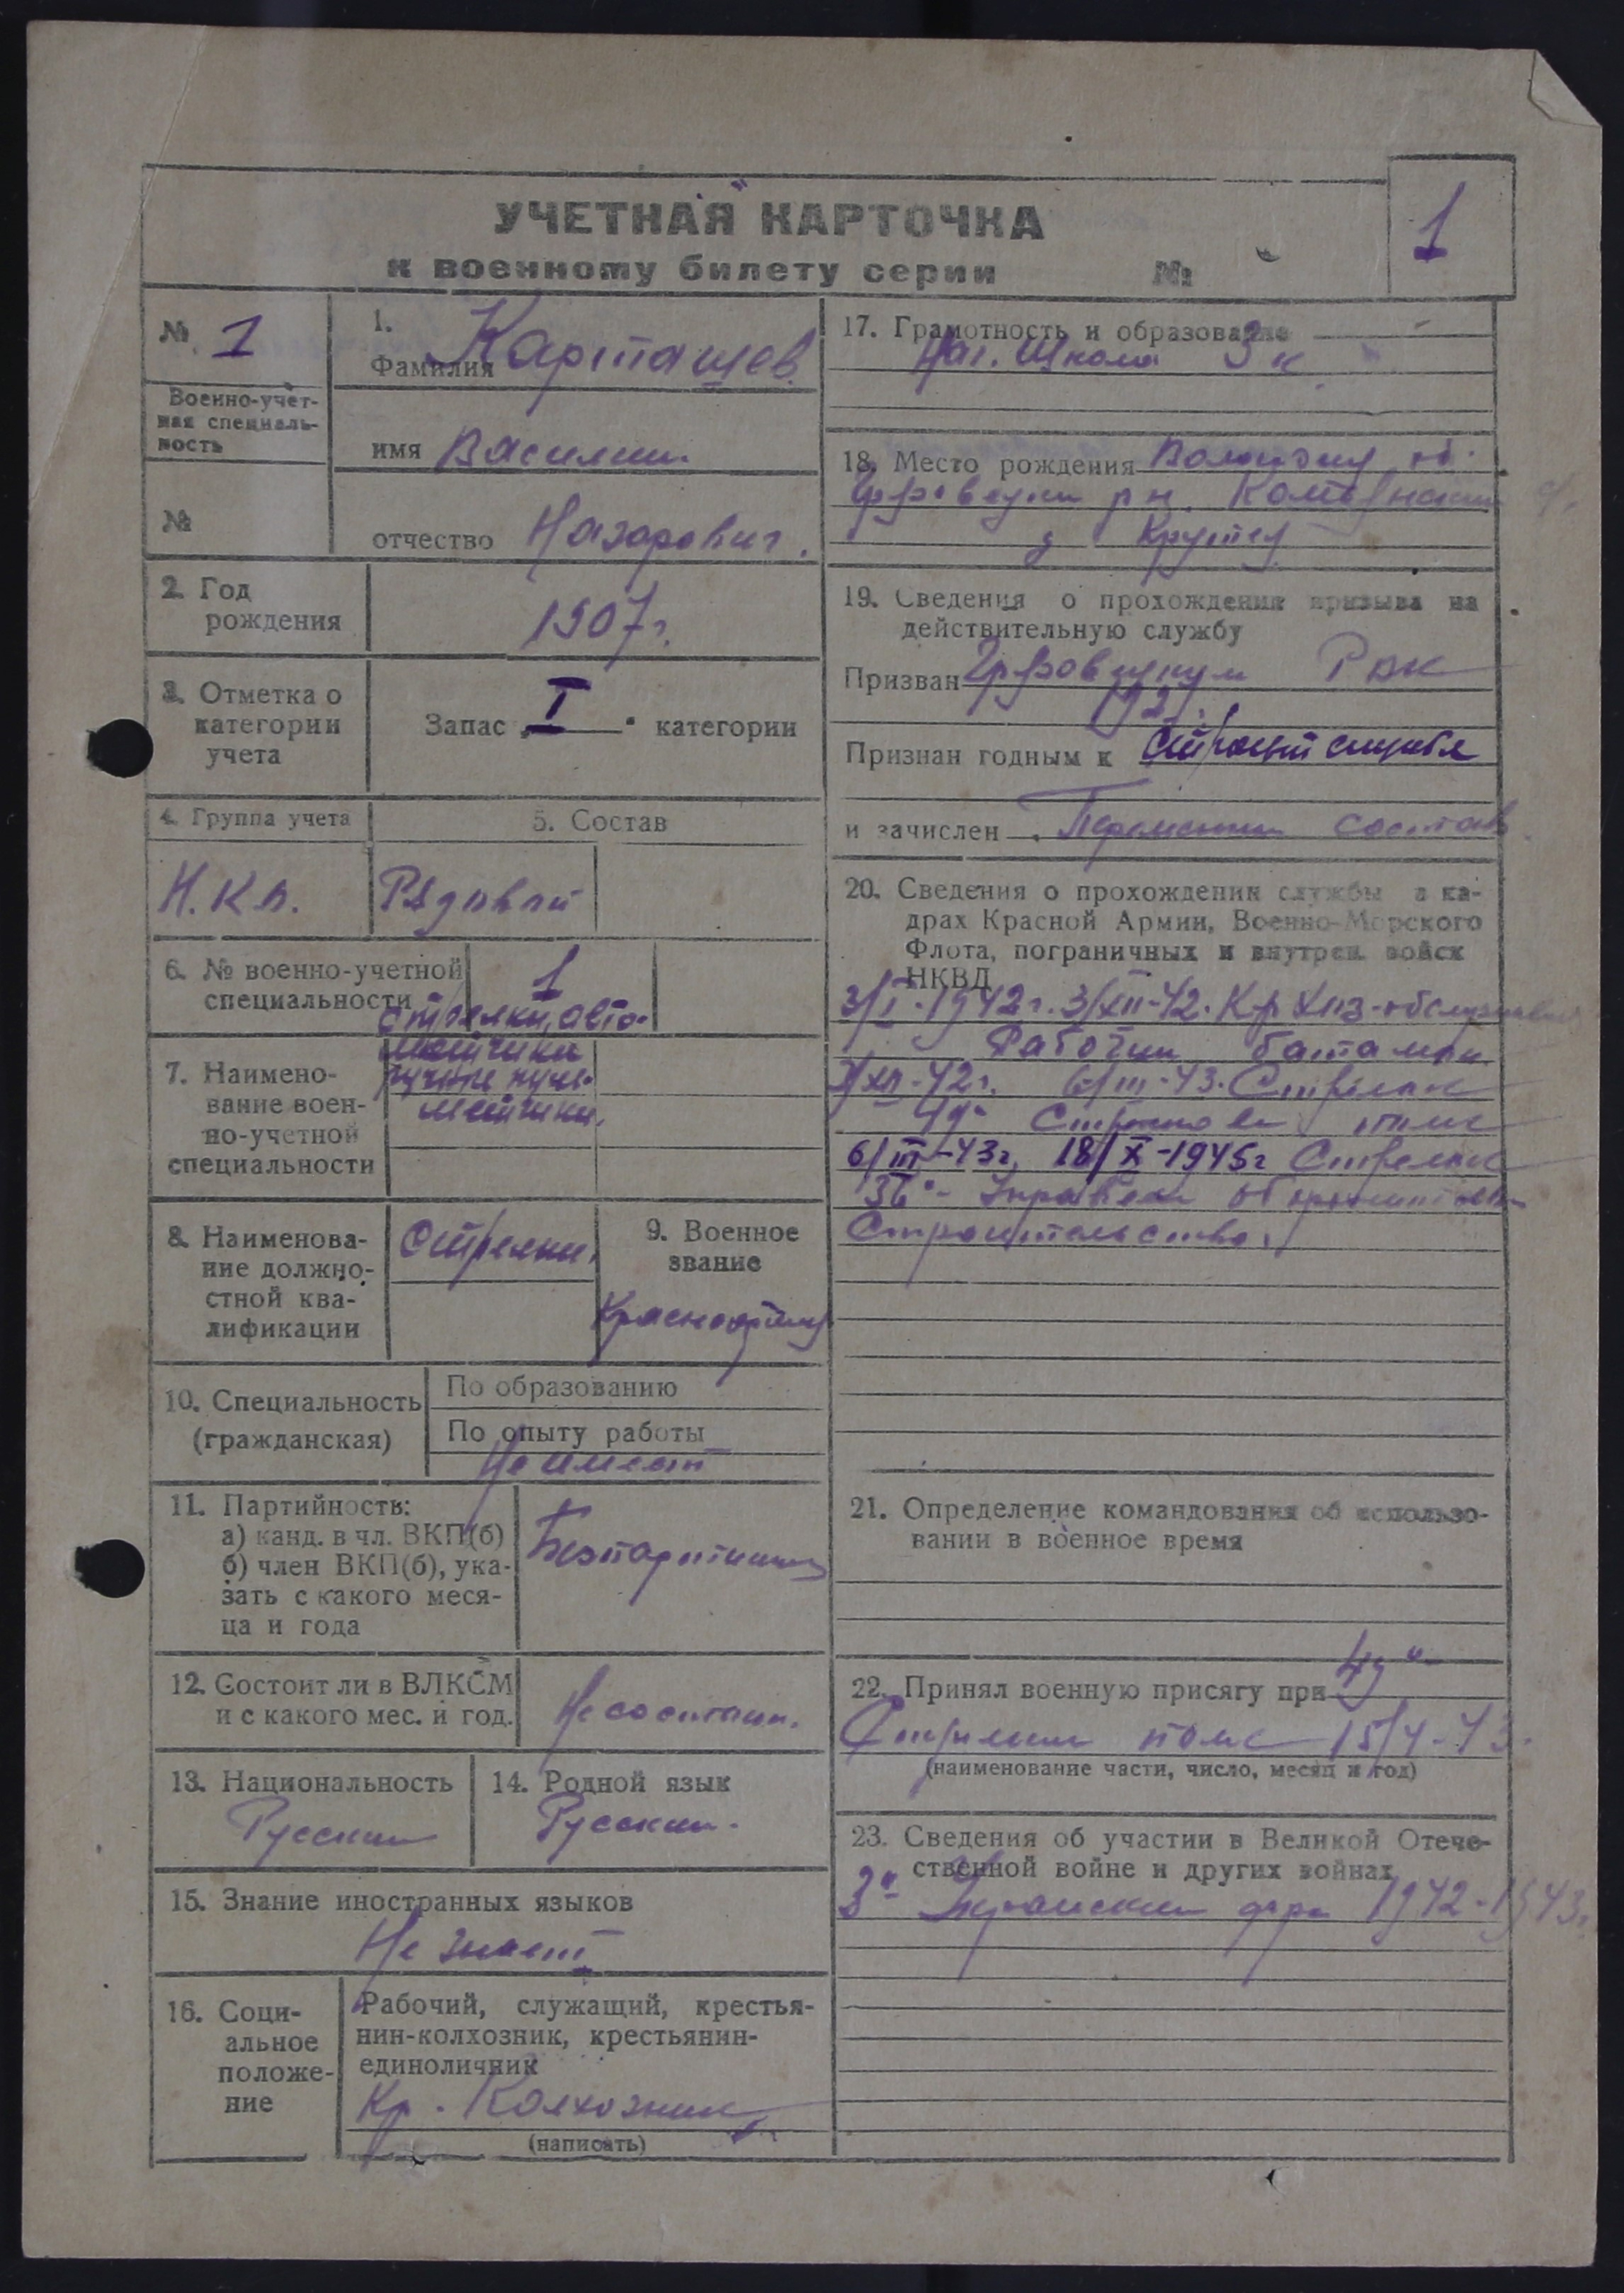 УЧЕТНАЯ КАРТОЧКА
к военному билету серии №
1
№ 1
Военно-учет-
ная специаль-
ность
№
1.
Фамилия Карташев
имя Василий
отчество Назарович.
2. Год
рождения
1907г.
3. Отметка о
категории
учета
Запас „I" категории
4. Группа учета
5. Состав
Н.К.А.
Рядовой
6. № военно-учетной
специальности
1
7. Наимено-
вание воен-
но-учетной
специальности
стрелки, авто-
матчики
ручные пуле-
метчики.
8. Наименова-
ние должно-
стной ква-
лификации
Стрелки.
9. Военное
звание
Красноармеец
10. Специальность
(гражданская)
По образованию
По опыту работы
Не имеет
11. Партийность:
а) канд. в чл. ВКП(б)
б) член ВКП(б), ука-
зать с какого меся-
ца и года
Безпартийный
12. Состоит ли в ВЛКСМ
и с какого мес. и год.
Не состоит.
13. Национальность
Русский
14. Родной язык
Русский.
15. Знание иностранных языков
Не знает
16. Соци-
альное
положе-
ние
Рабочий, служащий, крестья-
нин-колхозник, крестьянин-
единоличник
Кр. Колхозник
(написать)
17. Грамотность и образование
Нач. Школа 3 к.
18. Место рождения
рн.
д
19. Сведения о прохождении призыва на
действительную службу
Призван РВК
Признан годным к строевой службе
и зачислен Переменный состав
20. Сведения о прохождении службы в ка-
драх Красной Армии, Военно-Морского
Флота, пограничных и внутрен. войск
НКВД
3/I-1942г. 3/XII-42.
Рабочий батальон
3/XII-42г. 6/III-43. Стрелок
49й Стрелковый полк
6/III-43г, 18/X-1945г Стрелок
36е Управлен оборонительн
Строительства.
21. Определение командования об использо-
вании в военное время
22. Принял военную присягу при 49й
Стрелковый полк 15/4-43.
(наименование части, число, месяц и год)
23. Сведения об участии в Великой Отече-
ственной войне и других войнах
3й Украинский фрн 1942-1943г.